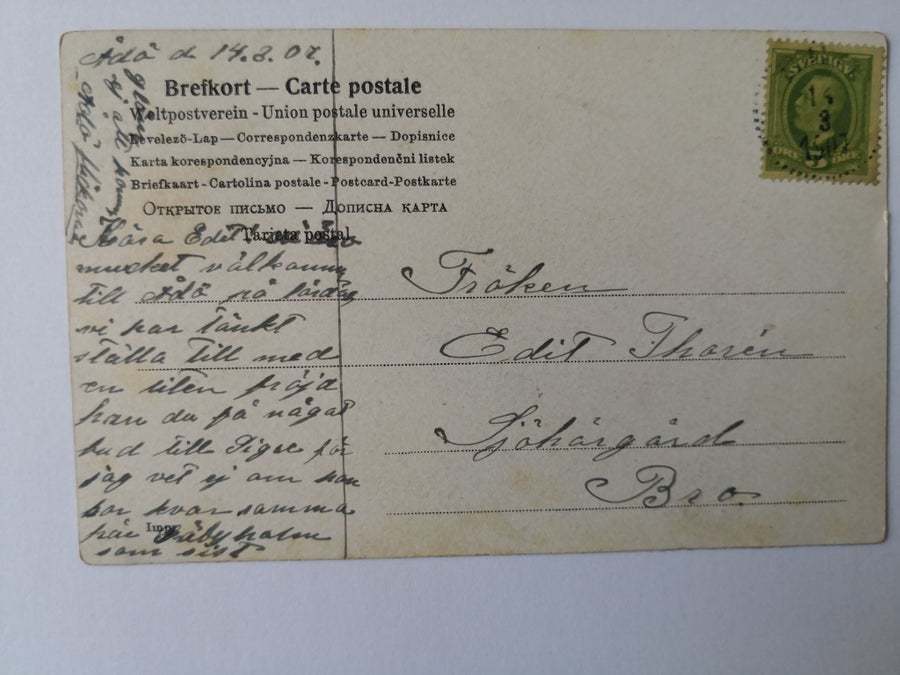 Ådö d 14.3.07.
glöm
ej att komm
Ådö flickorna
Brefkort — Carte postale
Weltpostverein - Union postale universelle
Levelezö-Lap — Correspondenzkarte — Dopisnice
Karta korespondencyjna — Korespondenčni listek
Briefkaart - Cartolina postale - Postcard - Postkarte
Открытое письмо — Дописна карта
Tarjeta postal
Kära Edit
mycket välkommen
till Ådö på lördag
vi har tänkt
ställa till med
en liten fröjd
kan du få något
bud till Signe för
jag vet ej om hon
bor kvar samma
här Säbyholm
som sist
Impr
Fröken
Edit Thorén
Sjöhärgård
Bro
SVERIGE
14
3
1907
5
ÖRE ÖRE